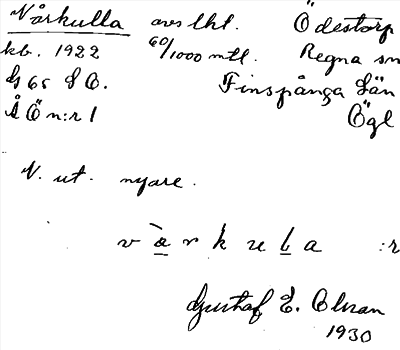 Vårkulla avs lht. Ödestorp
kb. 1922 60/1000 mtl. Regna sn
G 65 S O. Finspånga län
Å Ö n:r 1 Ögl
N. ut. nyare.
v à r k u l a :r
Gustaf E. Olsson
1930